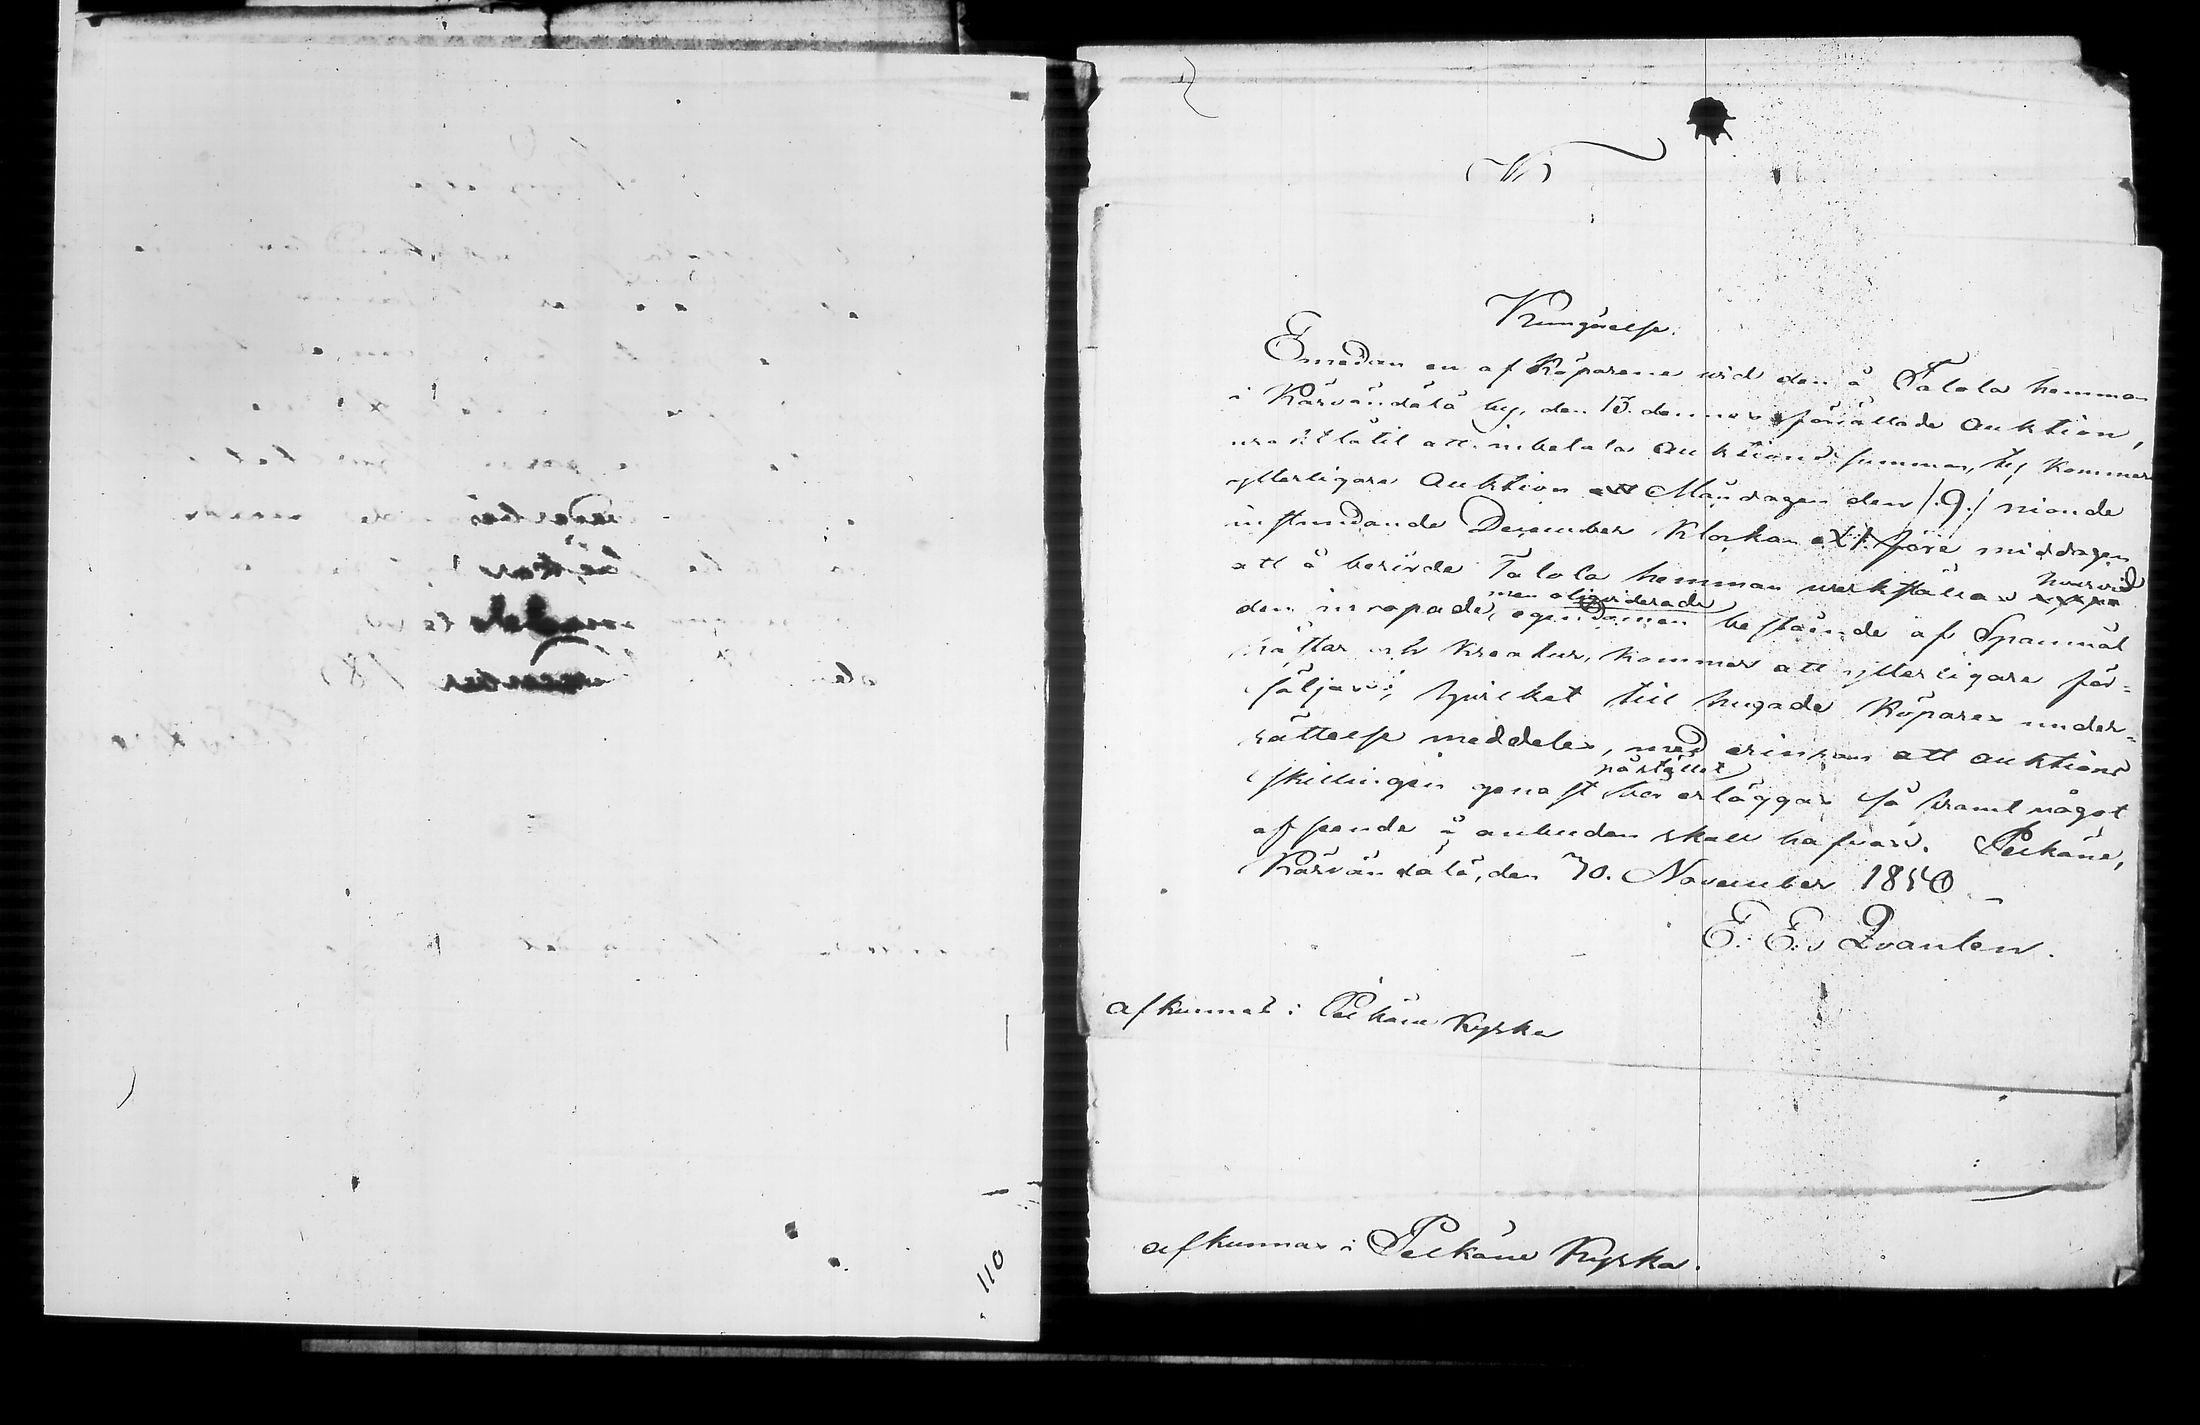 110
Kungörelse.
Emedan en af Köparene wid den å Talola hemman
i Kärvändälä by, den 13. dennes förrättade Auktion,
uraktlåtit att inbetala Auktions summan, ty kommer
ytterligare Auktion att Måndagen den /:9:/ nionde
instundande December Klockan X f. före middagen
att å berörde Talola hemman werkställas hvarvid
men olikviderade
den inropade, egendomen bestående af Spannmål
hästar och Kreatur, kommer att ytterligare för=
säljas; hvilket till hugade Köpares under=
rättelse meddelas, med erinran att auktions
påstället
skillingen genast bör erläggas så framt något
afseende å anbuden skall hafvas. Pelkäne,
Kärvändälä, den 30. November 1850
E. E. v Qvanten.
afkunnas i Pelkäne Kyrka
afkunnas i Pelkäne Kyrka.